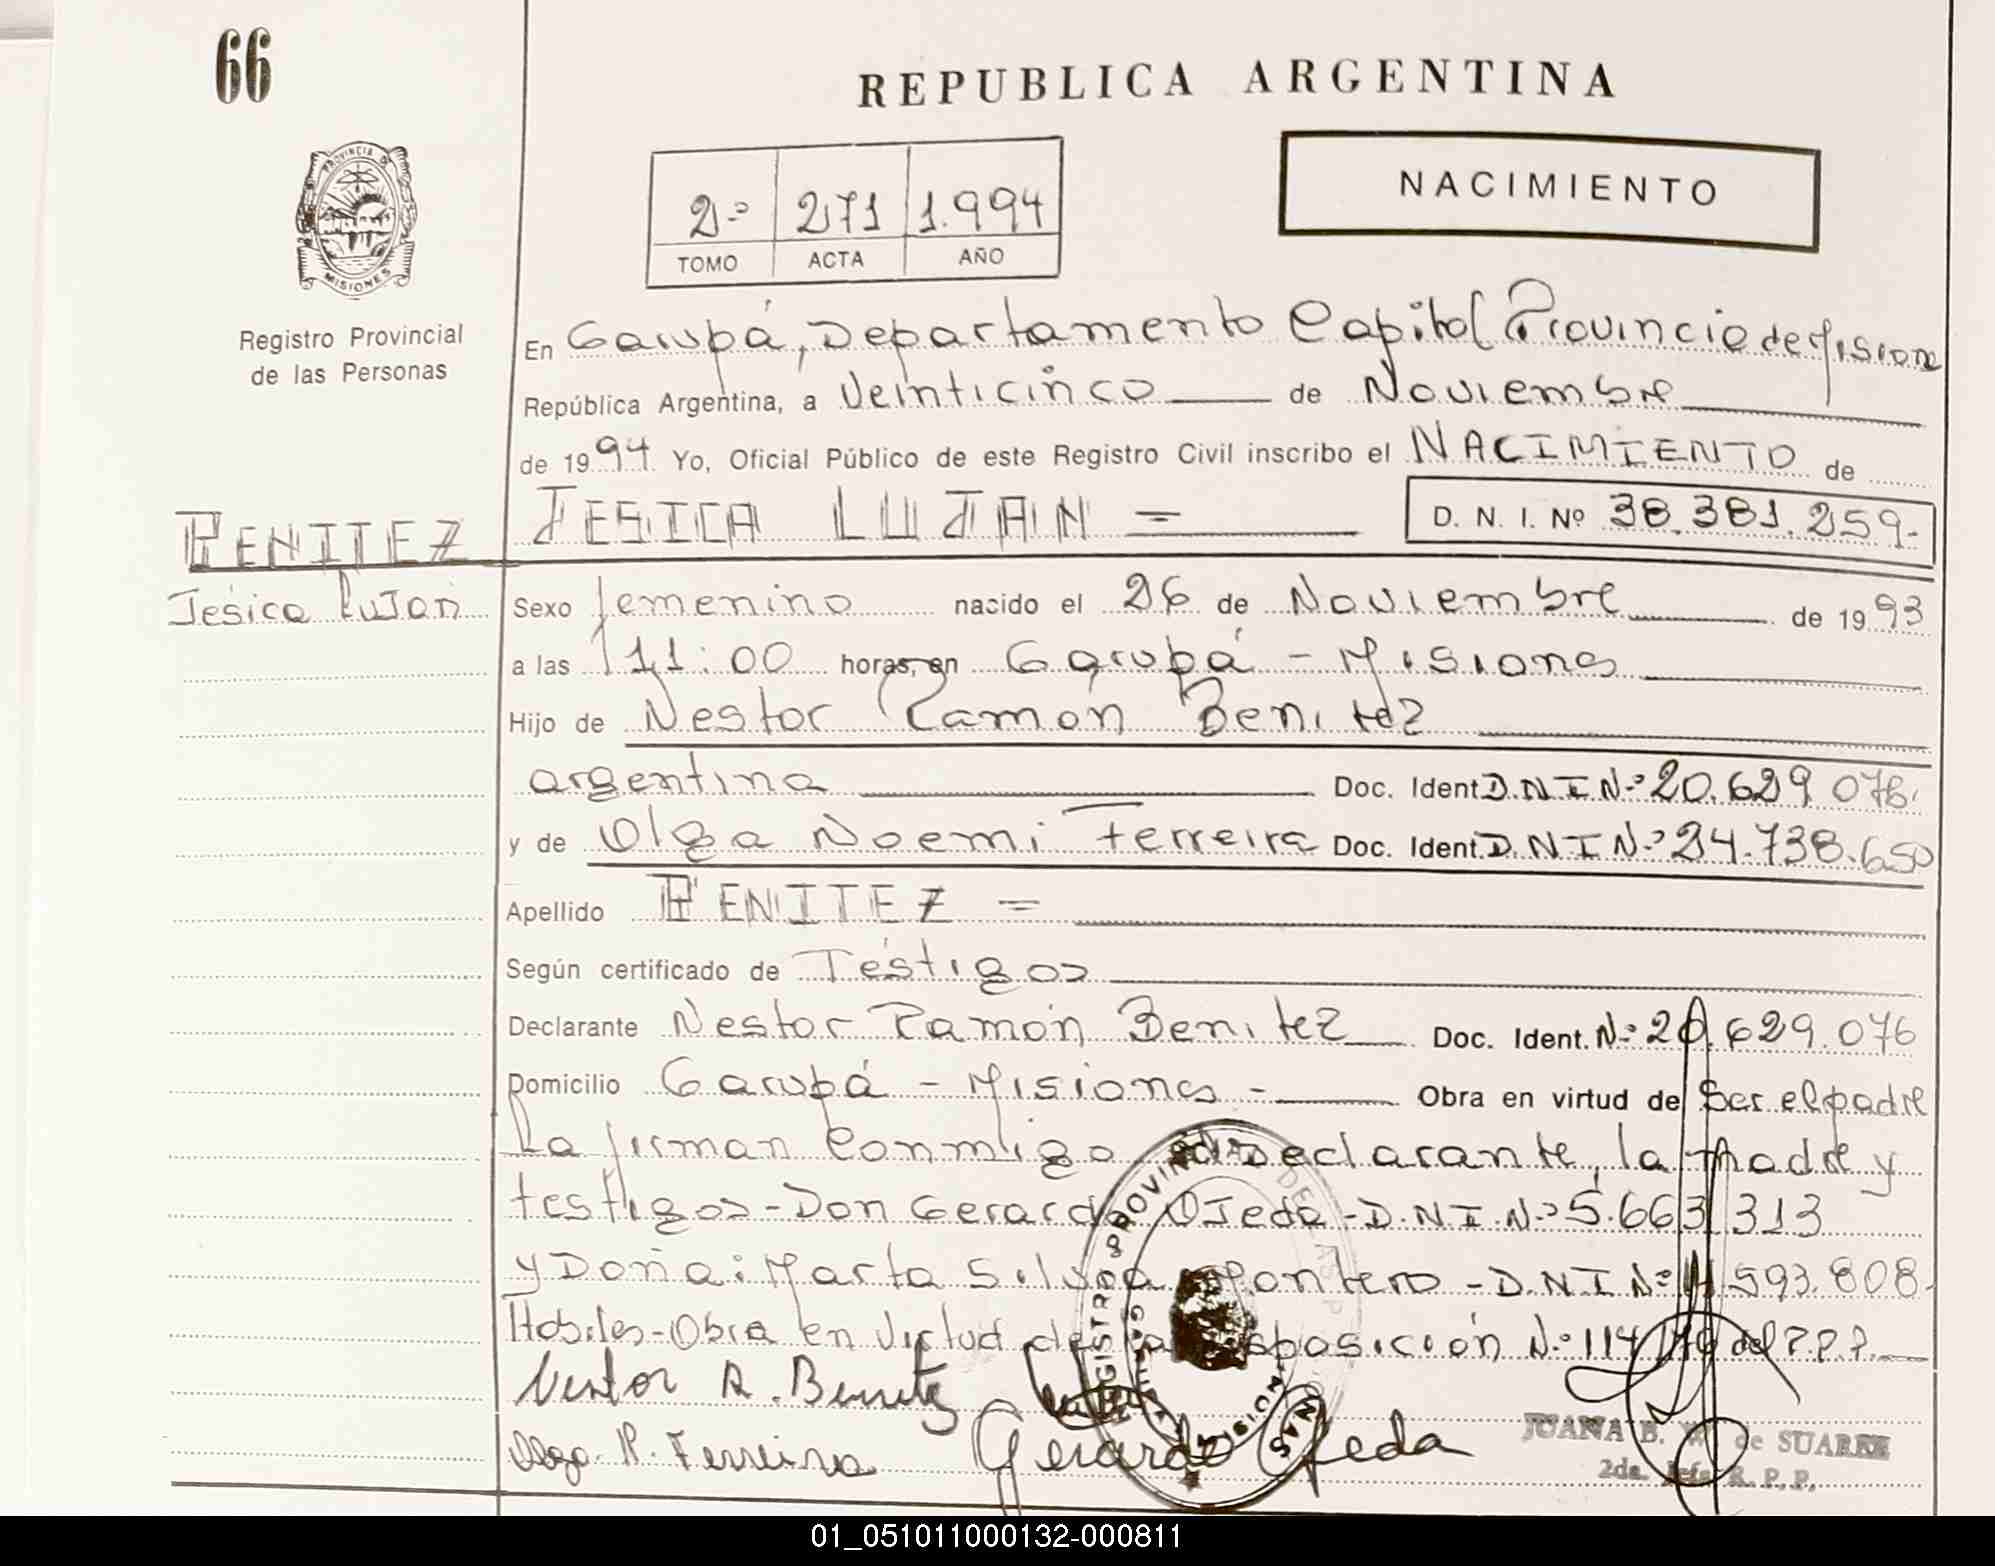 66
REPUBLICA ARGENTINA
PROVINCIA DE
MISIONES
Registro Provincial
de las Personas
2º 271 1.994
TOMO ACTA AÑO
NACIMIENTO
En Garupá, Departamento Capital Provincia de Misiones
República Argentina, a Veinticinco de Noviembre
de 1994 Yo, Oficial Público de este Registro Civil inscribo el NACIMIENTO de
BENITEZ
Jesica Lujan
JESICA LUJAN = D. N. I. Nº 38.381.259-
Sexo femenino nacido el 26 de Noviembre de 1993
a las 11:00 horas, en Garupá - Misiones
Hijo de Nestor Ramón Benitez
argentina Doc. Ident D.N.I Nº 20.629 076.
y de Olga Noemi Ferreira Doc. Ident. D.N.I Nº 24.738.650
Apellido BENITEZ =
Según certificado de Testigos
Declarante Nestor Ramón Benitez Doc. Ident. Nº 20.629.076
Domicilio Garupá - Misiones - Obra en virtud de Ser el padre
La firman Conmigo el Declarante, la Madre y
testigos - Don Gerardo OJeda - D.N.I.Nº 5.663 313
y Doña: Marta Silvia Montero - D.N.I Nº 593.808-
Habiles - Obra en Virtud de la Disposición Nº 114 del P.P.P.
Nestor R. Benitez
Olga N. Ferreira Gerardo Ojeda
JUANA B. de SUAREZ
2da. Jefe R.P.P.
01_051011000132-000811